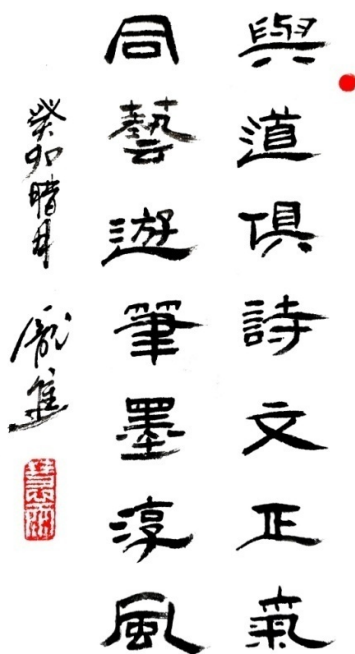 與道俱詩文正氣
同藝遊筆墨淳風
癸卯
龐進